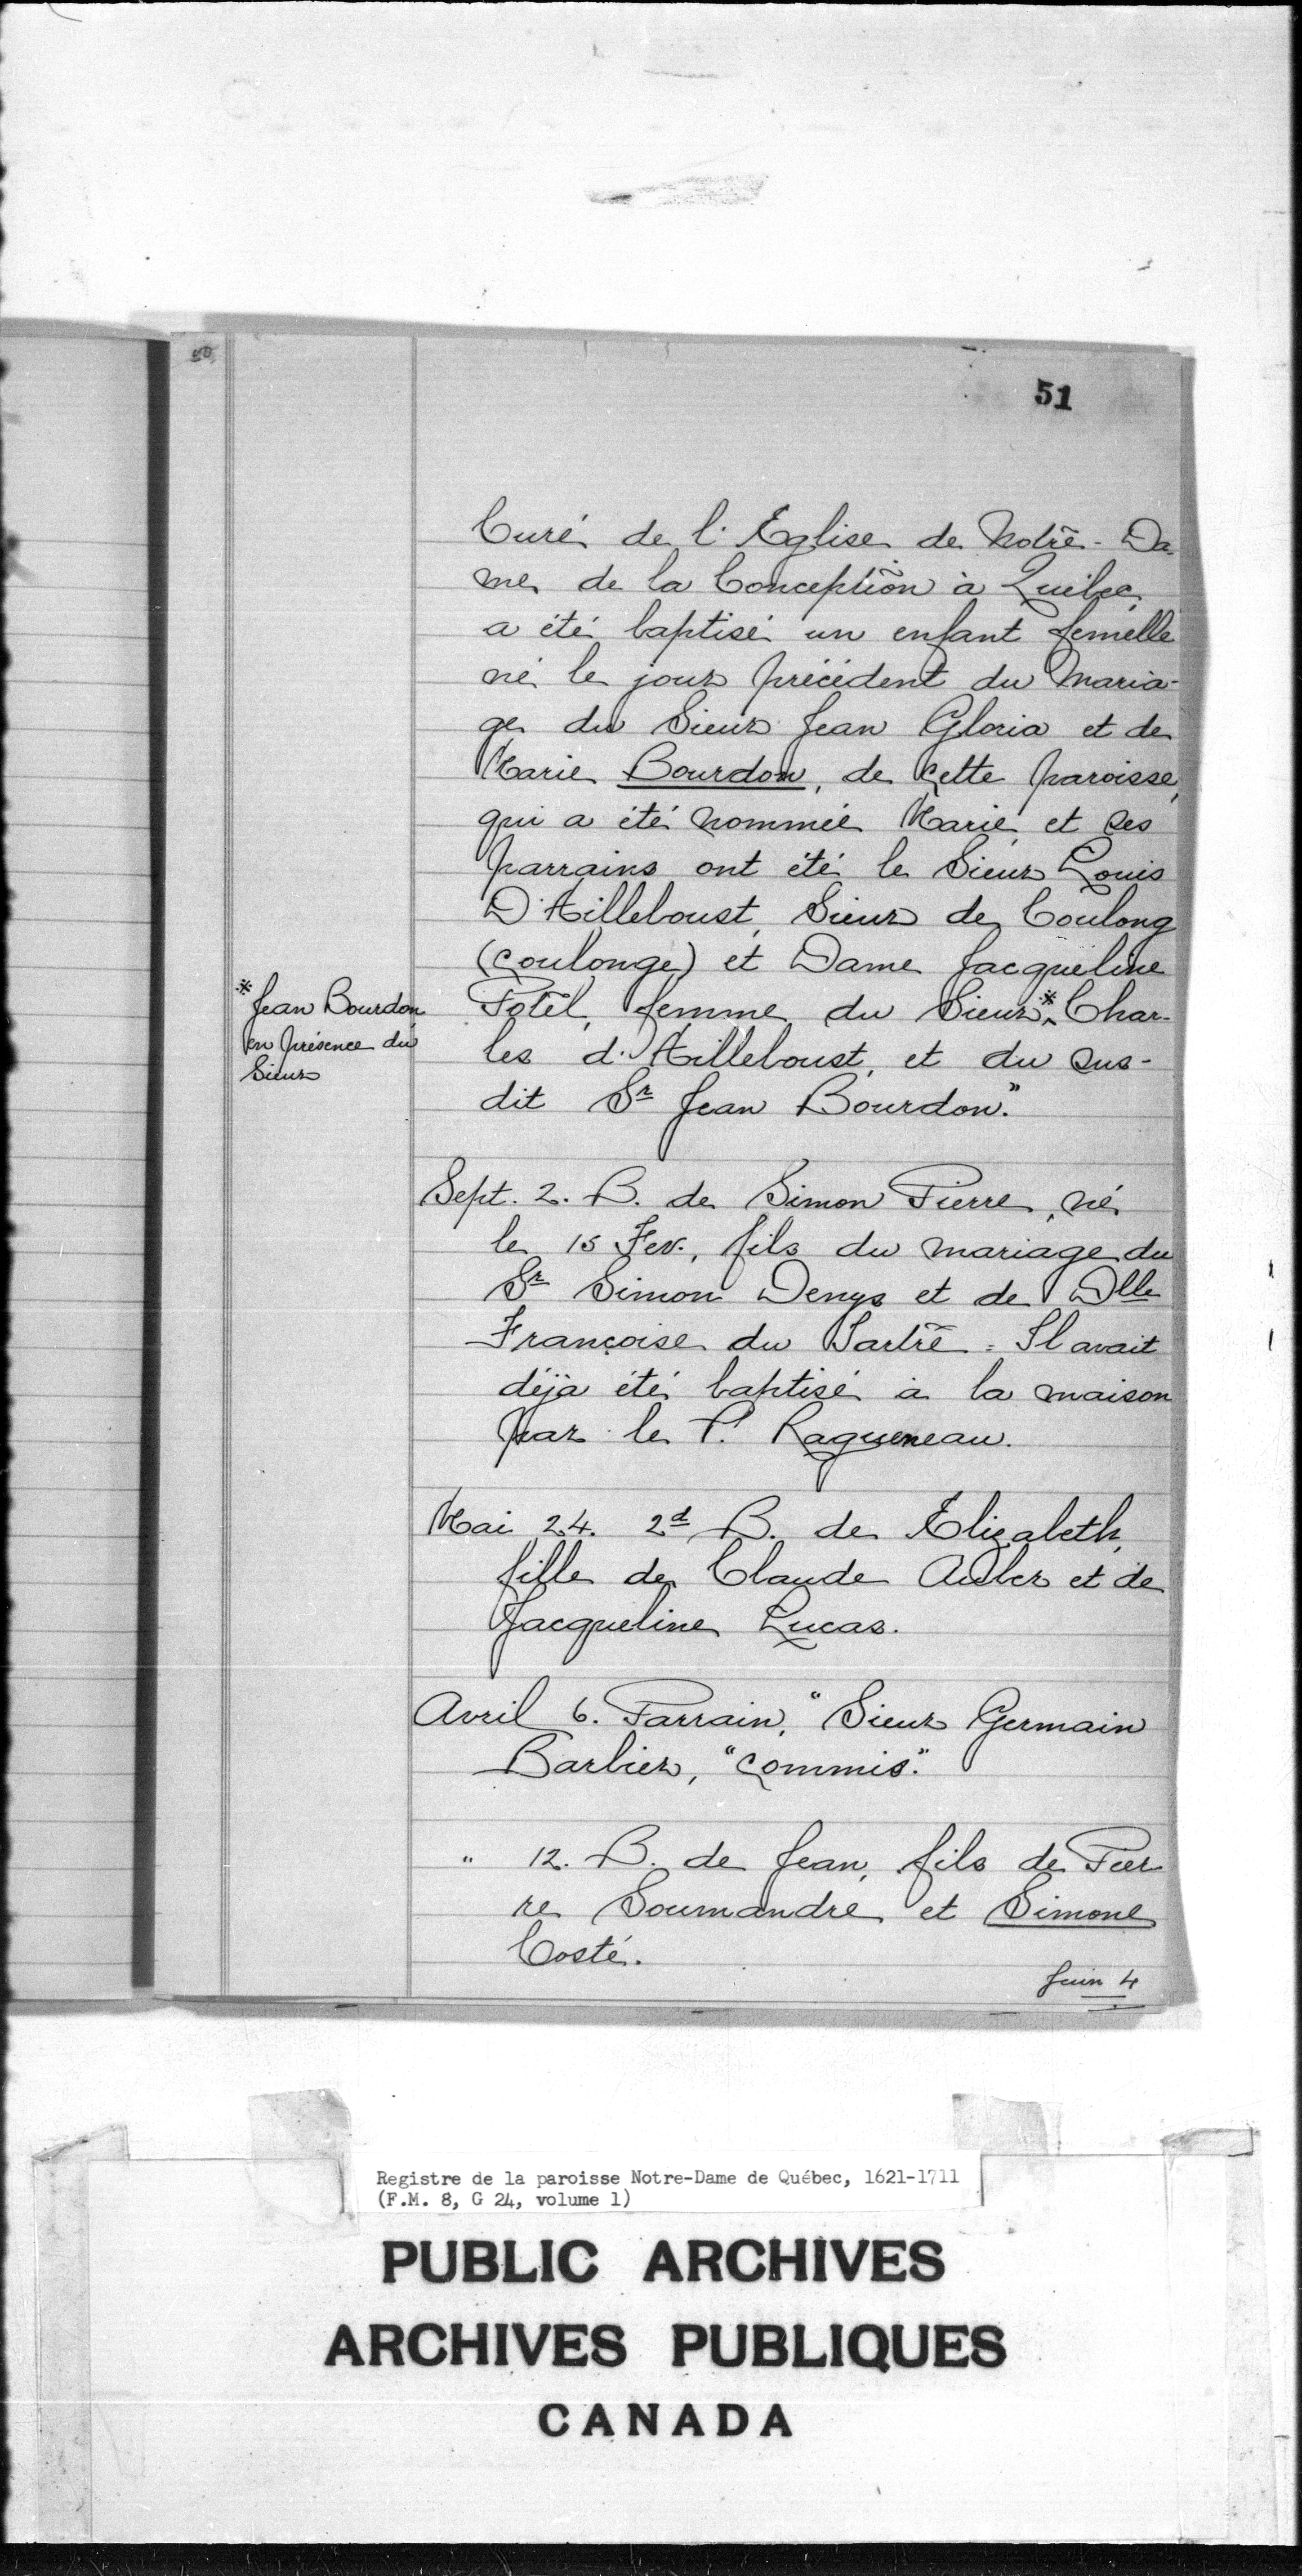 50
51
Curé de l'Eglise de Notre-Da-
me de la Conception à Québec,
a été baptisé un enfant femelle
né le jour précédent du Maria-
ge du Sieur Jean Gloria et de
Marie Bourdon, de cette paroisse,
qui a été nommée Marie et ses
parrains ont été le Sieur Louis
D'Ailleboust, Sieur de Coulong
(coulonge) et Dame Jacqueline
Potel, femme du Sieur * Char-
les d'Ailleboust, et du sus-
dit Sr Jean Bourdon."
* Jean Bourdon
en présence du
Sieur
Sept. 2. B. de Simon Pierre, né
le 15 Fev., fils du mariage du
Sr Simon Denys et de Dlle
Françoise du Tartre = Il avait
déjà été baptisé à la maison
par le P. Ragueneau.
Mai 24. 2d B. de Elizabeth,
fille de Claude Auber et de
Jacqueline Lucas.
Avril 6. Parrain, "Sieur Germain
Barbier, "commis."
" 12. B. de Jean, fils de Pier
re Soumandre et Simone
Costé.
Juin 4
Registre de la paroisse Notre-Dame de Québec, 1621-1711
(F.M. 8, G 24, volume 1)
PUBLIC ARCHIVES
ARCHIVES PUBLIQUES
CANADA